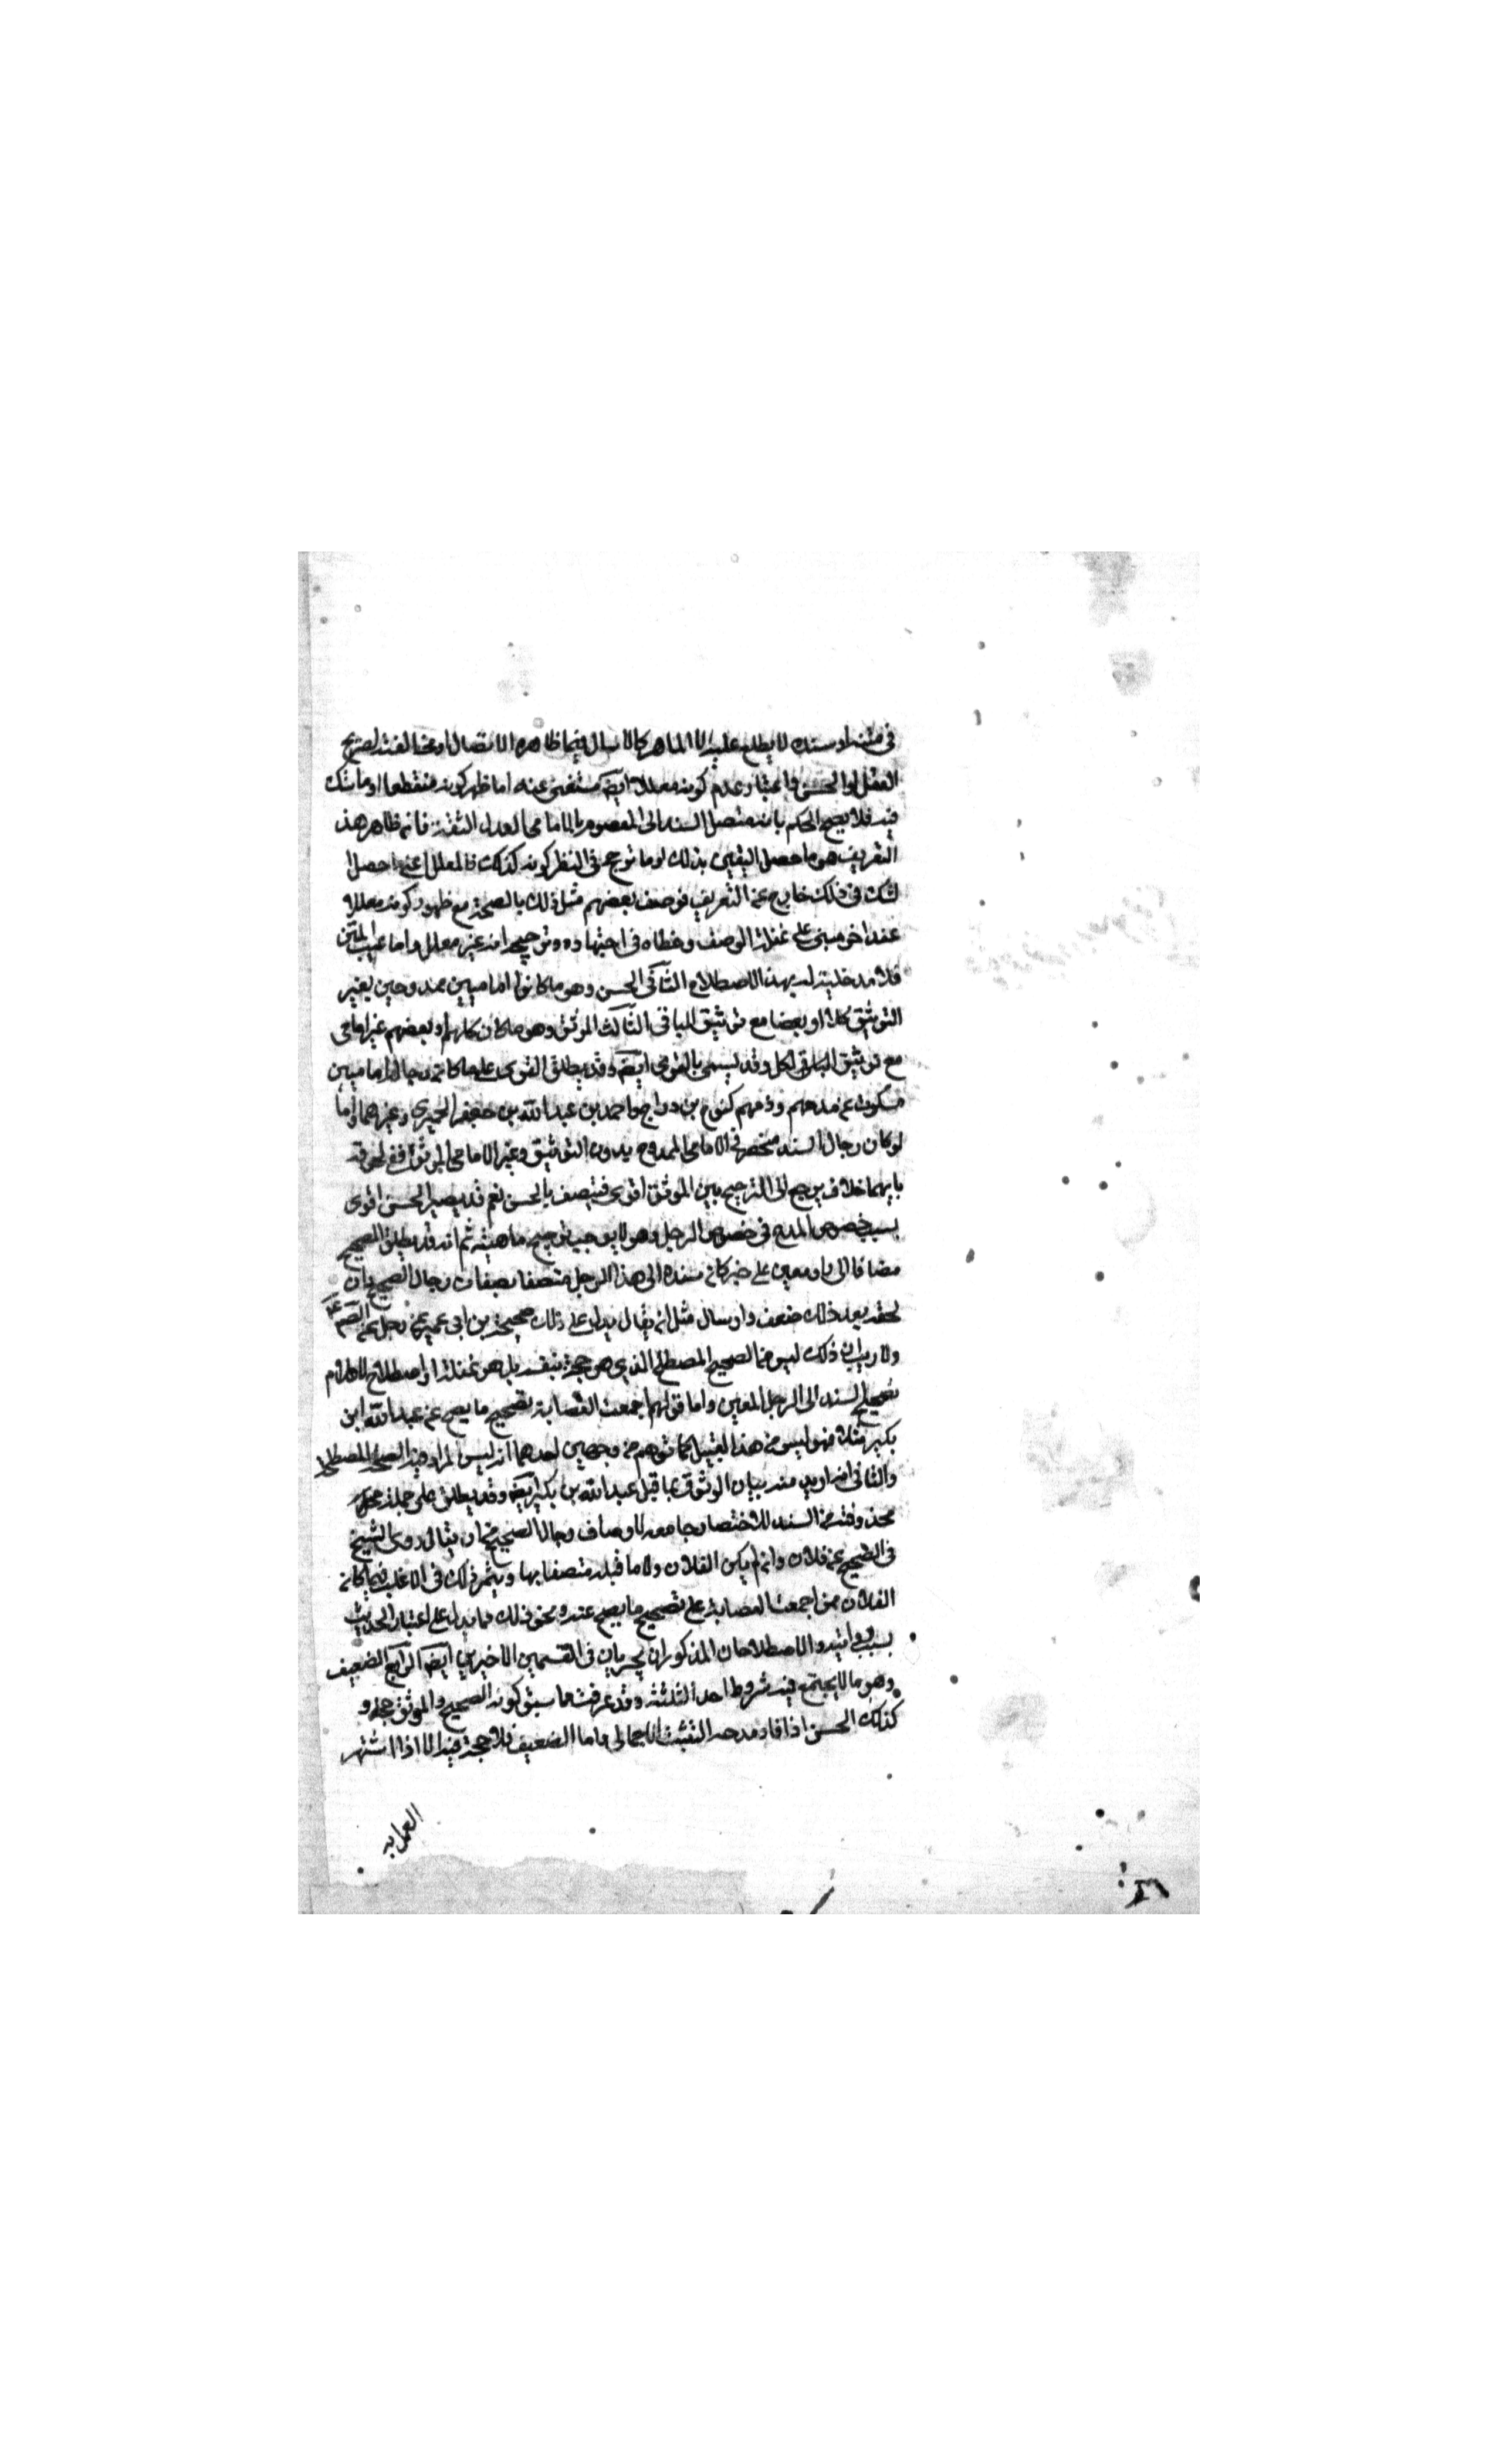 في متنه او سنده لا يطلع عليه الا الماهر كالارسال فيما ظاهره الاتصال او مخالفته لصريح
العقل او الحسن فاعتبار عدم كونه معللا ايضا مستغنى عنه اما ظهر كونه منقطعا او ما شك
فيه فلا يصح الحكم بانه متصل السند الى المعصوم بالامامي العدل الثقة فان ظاهر هذ
التعريف هو ما حصل اليقين بذلك او ما ترجح في النظر كونه كذلك فالمعلل اعني ما حصل ا
لشك في ذلك خارج عن التعريف فوصف بعضهم مثل ذلك بالصحة مع ظهور كونه معللا
عند اخر مبني على غفلة الوصف وخطاه في اجتهاده وترجيح انه غير معلل واما عيب المتن
فلا مدخلية له بهذا الاصطلاح الثاني الحسن وهو ما كانوا اماميين ممدوحين بغير
التوثيق كلا او بعضا مع توثيق الباقي الثالث الموثق وهو ما كان كلهم او بعضهم غير امامي
مع توثيق الكل وقد يسمى بالقوي ايضا وقد يطلق القوي على ما كان رجاله اماميين
مسكوت عن مدحهم وذمهم كنوح بن دراج واحمد بن عبد الله بن جعفر الحميري وغيرهما واما
لو كان رجال السند منحصرا في الامامي الممدوح بدون التوثيق وغير الامامي الموثق ففي لحوقه
بايهما خلاف يرجع الى الترجيح بين الموثق اقوى فيتصف بالحسن نعم قد يصير الحسن اقوى
بسبب خصوص المدح في خصوص الرجل وهو لا يوجب ترجيح ماهيته ثم انه قد يطلق الصحيح
مضافا الى راو معين على خبر كان سنده الى هذا الرجل متصفا بصفات رجال الصحيح وان
لحقه بعد ذلك ضعف وارسال مثل ان يقال يدل على ذلك صحيحة بن ابي عمير عن رجل عن الصم ع
ولا ريب ان ذلك ليس من الصحيح المصطلح الذي هو حجة بنفسه بل هو غفلة او اصطلاح لاعلام
تصحيح السند الى الرجل المعين واما قولهم اجمعت العصابة بتصحيح ما يصح عن عبد الله ابن
بكير مثلا فهو ليس من هذا القبيل كما توهم من وجهين احدهما انه ليس المراد فيه الصحة المصطلح
والثاني انه اريد منه بيان الوثوق بما قبل عبد الله بن بكير ايضا وقد يطلق على جملة
محذوفة من السند للاختصار جامعه لاوصاف رجال الصحيح فان يقال روى الشيخ
في الصحيح عن فلان وان لم يكن الفلان ولا ما قبله متصفا بها ويثمر ذلك في الاغلب فيما كان
الفلان ممن اجمعت العصابة على تصحيح ما يصح عنه ونحو ذلك مما يدل على اعتبار الحديث
بسبب روايته والاصطلاحان المذكوران يجريان في القسمين الاخيرين ايضا الرابع الضعيف
وهو ما لا يجتمع فيه شروط احد الثلثة وقد عرفت مما سبق كون الصحيح والموثق حجة و
كذلك الحسن اذا افاد مدحه التثبت الاجمالي واما الضعيف فلا حجة فيه الا اذا اشتهر
العمل به